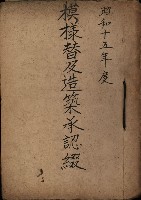 昭和十五年度
模様替及造築承認綴